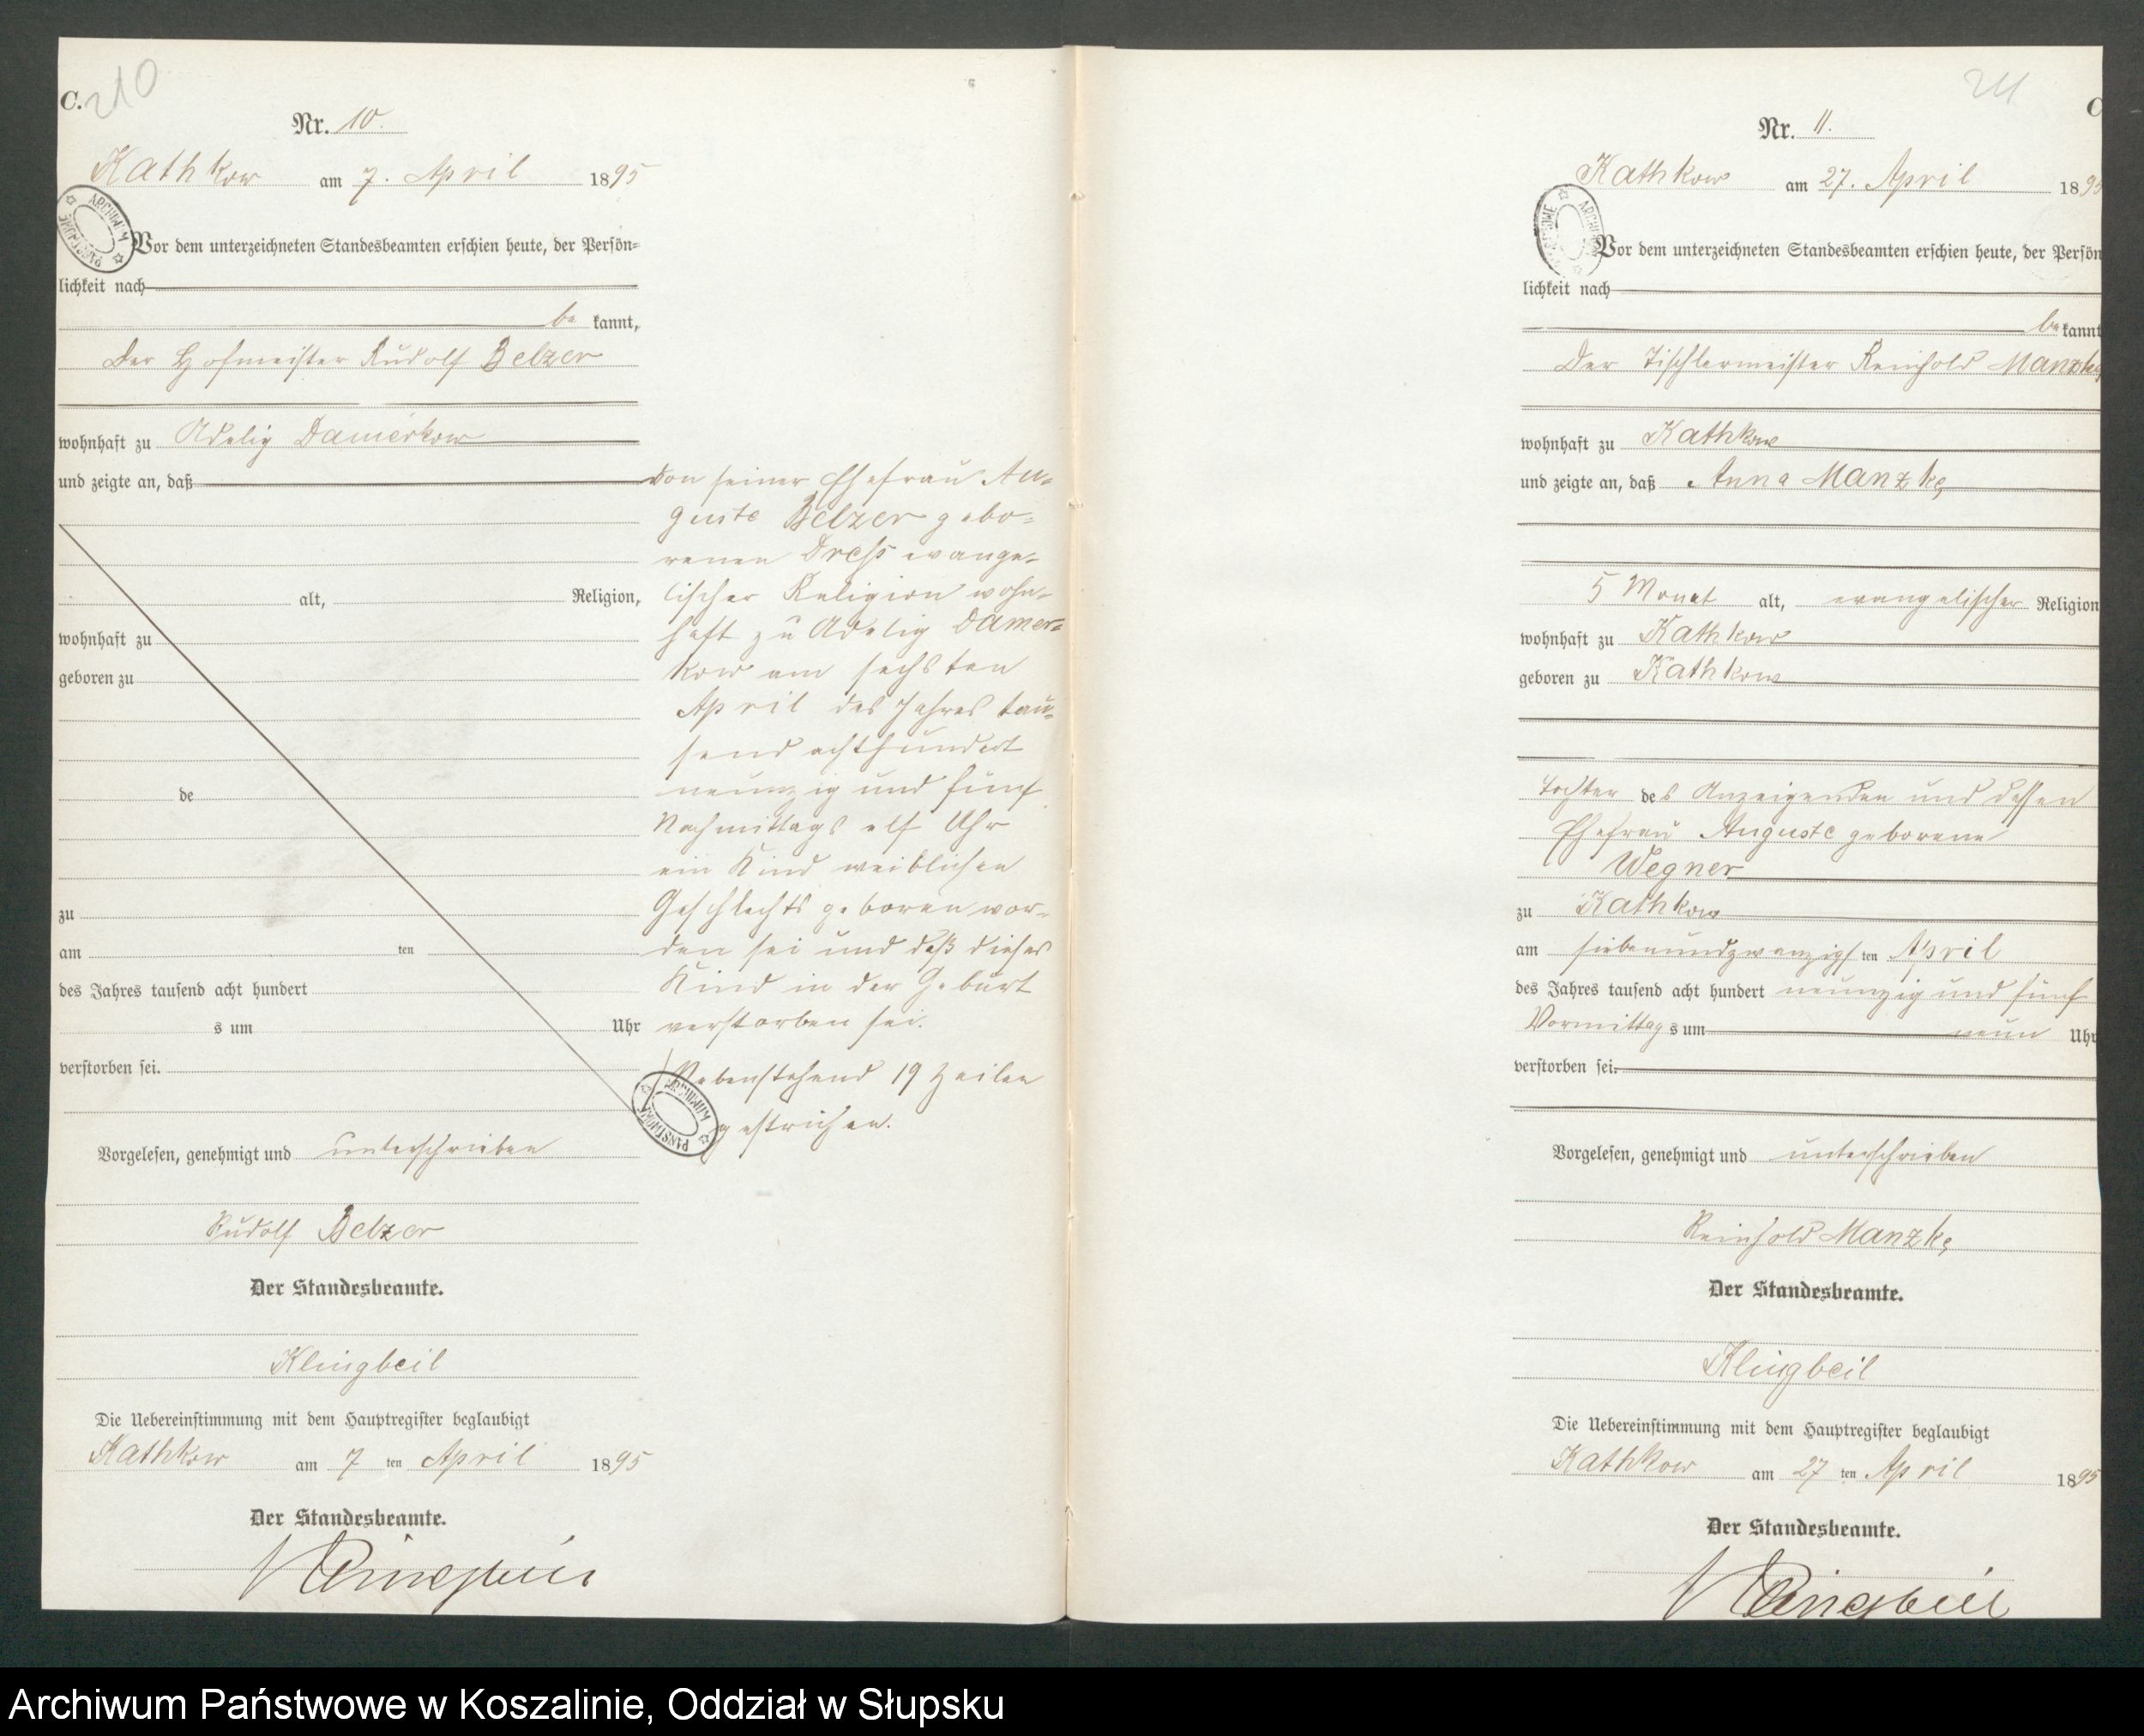 C. 210
Nr. 10.
Kathkow am 7. April 1895
Vor dem unterzeichneten Standesbeamten erschien heute, der Persön-
lichkeit nach
be kannt,
Der Hofmeister Rudolf Belzer
wohnhaft zu Adelig Damerkow
und zeigte an, daß
alt, Religion,
wohnhaft zu
geboren zu
de
zu
am ten
des Jahres tausend acht hundert
s um Uhr
verstorben sei.
von seiner Ehefrau Au-
guste Belzer gebo-
renen Dreß evange-
lischer Religion wohn-
haft zu Adelig Damer-
kow am sechsten
April des Jahres tau-
send achthundert
neunzig und fünf
Nachmittags elf Uhr
ein Kind weiblichen
Geschlechts geboren wor-
den sei und daß dieses
Kind in der Geburt
verstorben sei.
Nebenstehend 19 Zeilen
gestrichen.
ARCHIWUM PAŃSTWOWE
Vorgelesen, genehmigt und unterschrieben
Rudolf Belzer
Der Standesbeamte.
Klingbeil
Die Uebereinstimmung mit dem Hauptregister beglaubigt
Kathkow am 7 ten April 1895
Der Standesbeamte.
Klingbeil
211 C
Nr. 11.
Kathkow am 27. April 1895
Vor dem unterzeichneten Standesbeamten erschien heute, der Persön
lichkeit nach
be kannt
Der Tischlermeister Reinhold Manzke
wohnhaft zu Kathkow
und zeigte an, daß Anna Manzke
5 Monat alt, evangelischer Religion
wohnhaft zu Kathkow
geboren zu Kathkow
Tochter des Anzeigenden und dessen
Ehefrau Auguste geborene
Wegner
zu Kathkow
am siebenundzwanzigs ten April
des Jahres tausend acht hundert neunzig und fünf
Vormittag s um neun Uhr
verstorben sei.
Vorgelesen, genehmigt und unterschrieben
Reinhold Manzke
Der Standesbeamte.
Klingbeil
Die Uebereinstimmung mit dem Hauptregister beglaubigt
Kathkow am 27 ten April 1895
Der Standesbeamte.
Klingbeil
Archiwum Państwowe w Koszalinie, Oddział w Słupsku